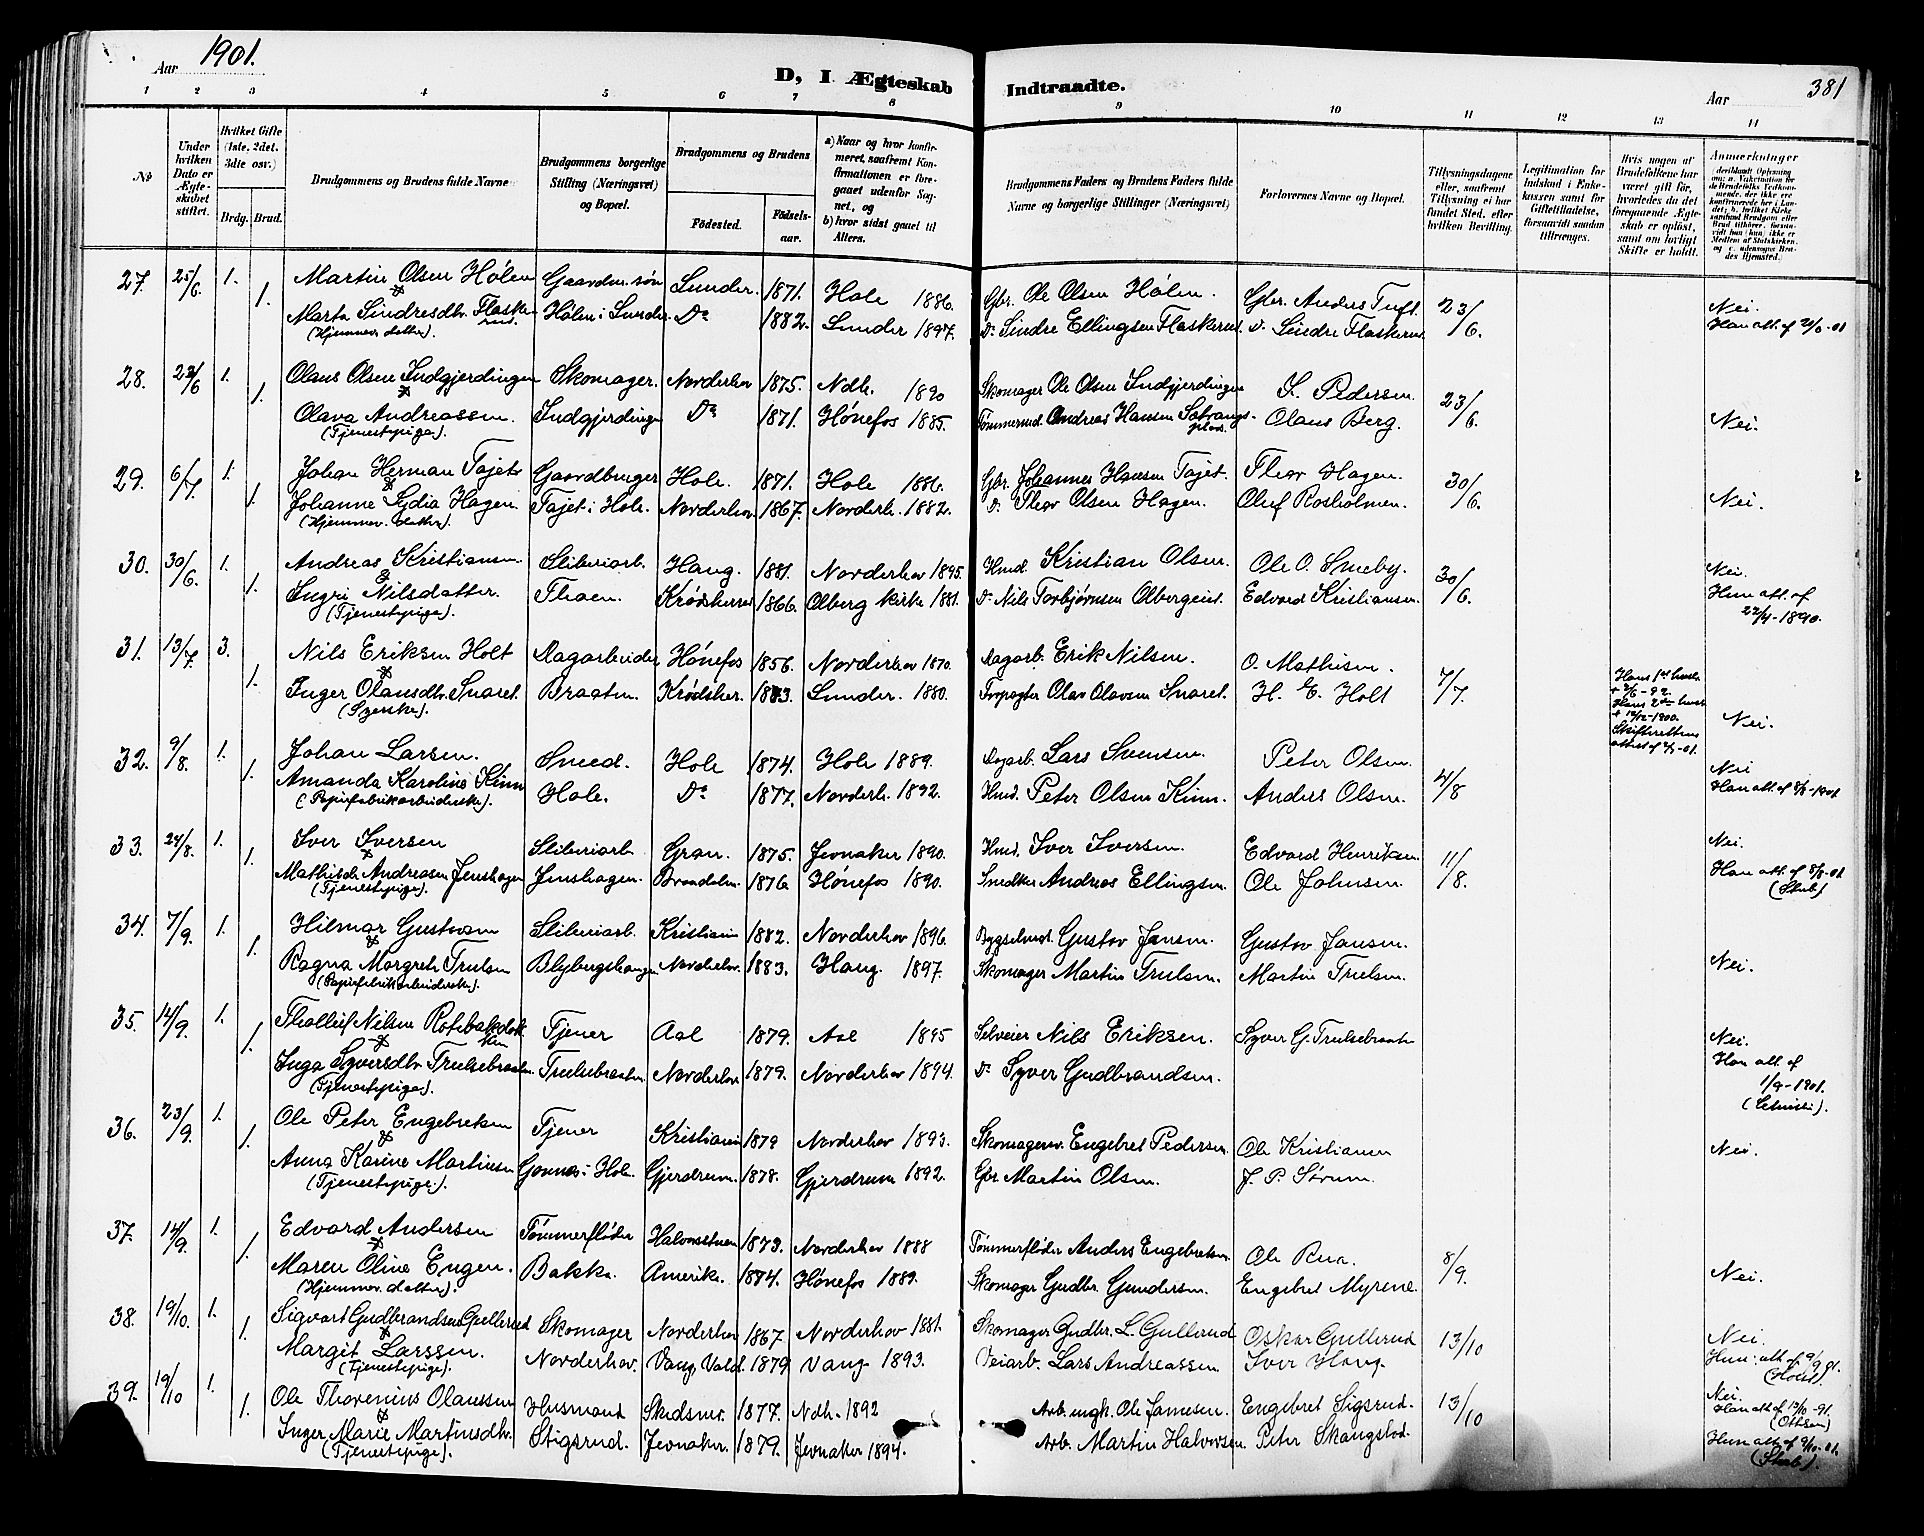 Aar 1901.
D, I Ægteskab Indtraadte.
Aar 381
1 2 3 4 5 6 7 8 9 10 11 12 13 14
No
Under hvilken Dato er Ægteskabet stiftet.
Hvilket Gifte (1ste, 2det, 3dte osv.)
Brdg. Brud.
Brudgommens og Brudens fulde Navne
Brudgommens borgerlige Stilling (Næringsvei) og Bopæl.
Brudgommens og Brudens
Födested. Födselsaar.
a) Naar og hvor konfirmeret, saafremt Konfirmationen er foregaaet udenfor Sognet, og
b) hvor sidst gaaet til Alters.
Brudgommens Faders og Brudens Faders fulde Navne og borgerlige Stillinger (Næringsvei)
Forlovernes Navne og Bopæl.
Tillysningsdagene eller, saafremt Tillysning ei har fundet Sted, efter hvilken Bevilling.
Legitimation for Indskud i Enkekassen samt for Giftetilladelse, forsaavidt saadan tiltrænges.
Hvis nogen af Brudefolkene har været gift för, hvorledes da det foregaaende Ægteskab er oplöst, samt om lovligt Skifte er holdt.
Anmærkninger
27. 25/6. 1. Martin Olsen Hólen Gaardm. søn Sunder. 1871. Hole 1886. Gbr. Ole Olsen Hólen. Gbr. Anders Tuft. 23/6. Nei.
& 1. Marta Sindresdtr. Flaskerud Hólen i Sunder Do 1882. Sunder 1897. Do Sindre Ellingsen Flaskerud. Do Sindre Flaskerud. Han att. af
(Hjemmev. datter).
28. 23/6 1. Olaus Olsen Indgjerdingen Skomager. Norderhov 1875. Ndh. 1890 Skomager Ole Olsen Indgjerdingen S. Pedersen 23/6.
1. Olava Andreassen. Indgjerdingen Do 1871. Hónefos 1885. Tømmermd. Andreas Hansen Olaus Berg. Nei.
(Tjenestepige).
29. 6/7. 1. Johan Herman Fajet Gaardbruger Hole. 1871. Hole 1886. Gbr. Johannes Hansen Fajet. Thor Hagen. 30/6.
& 1. Johanne Lydia Hagen. Fajet i Hole. Norderhov 1867. Norderh. 1882. Do Thor Olsen Hagen. Oluf Rosholmen. Nei.
(Hjemmev. datter).
30. 30/6. 1. Andreas Kristiansen Sliberiarb. Haug. 1881. Norderhov 1895. Hmd. Kristian Olsen. Ole O. Smeby. 30/6. Nei.
& 1. Ingri Nilsdatter. Thoen. Krødsherred 1866. Olberg kirke 1881. Do Nils Torbjørnsen Olbergeiet. Edvard Kristiansen. Hun att. af 22/4-1890.
(Tjenestepige).
31. 13/7. 3. Nils Eriksen Holt Dagarbeider Hónefos 1856. Norderhov 1870. Dagarb. Erik Nilsen. O. Mathisen. 7/7. Hans 1st hustr. + 2/6-92. Hans 2den hust. + 12/12-1900. Skifterettens attest af
& 1. Inger Olausdtr. Snaret. Braaten. Krødsher. 1863. Sunder. 1880. Forpagter Olav Olavsen Snaret. H. E. Holt Nei.
(Syerske).
32. 9/8. 1. Johan Larsen. Smed. Hole 1874. Hole 1889. Dagarb. Lars Svensen. Peter Olsen. 4/8 Nei
1. Amanda Karoline Kinn Hole. Do 1877. Norderh. 1892. Hmd. Peter Olsen Kinn. Anders Olsen. Han att. af
(Papirfabrikarbeiderske).
33. 24/8. 1. Iver Iversen Sliberiarb. Gran. 1875. Jevnaker 1890. Hmd. Iver Iversen. Edvard Henriksen 11/8. Nei.
& 1. Mathilde Andreasen Jenshagen Jenshagen. Brandalen. 1876. Hónefos 1890. Snedker Andreas Ellingsen. Ole Johnsen. Han att. af
(Tjenestepige).
34. 7/9. 1. Hilmar Gustavsen Sliberiarb. Kristiania 1882. Norderhov 1896. Bygselmd. Gustav Jansen. Gustav Jansen.
& 1. Ragna Margrete Trulsen Blybergshaugen Norderhov. 1883. Haug. 1897. Skomager Martin Trulsen. Martin Trulsen. Nei.
(Papirfabrikarbeiderske).
35. 14/9. 1. Tholleif Nilsen Tjener Aal 1879. Aal 1895 Selveier Nils Eriksen. Syver G. Trulsebraaten Nei.
& 1. Inga Syversdtr. Trulsebraaten. Trulsebraaten Norderhov 1879. Norderhov 1894. Do Syver Gudbrandsen. Han att. af 1/9-1901.
(Tjenestepige).
36. 23/9. 1. Ole Peter Engebretsen Tjener Kristiania 1879 Norderhov 1893. Skomagersv. Engebret Pedersen. Ole Kristiansen Nei.
& 1. Anna Karine Martinsen Gomnes i Hole. Gjerdrum. 1878. Gjerdrum 1892. Gbr. Martin Olsen. J. P. Sórum.
(Tjenestepige).
37. 14/9. 1. Edvard Andersen Tømmerfløder Halvorsstuen 1873. Norderhov 1888 Tømmerfløder Anders Engebretsen Ole Rua. 8/9.
& 1. Maren Oline Engen. Bakke. Amerika. 1874. Hónefos 1889. Skomager Gudbr. Gundersen. Engebret Myrene. Nei.
(Hjemmev. datter).
38. 19/10. 1. Sigvart Gudbrandsen Gullerud Skomager Norderhov 1867. Norderhov 1881. Skomager Gudbr. L. Gullerud Oskar Gullerud 13/10 Nei.
& 1. Margit Larssen. Norderhov. Vang, Vald. 1879 Vang 1893. Veiarb. Lars Andreassen Iver Haug. Hun att. af
(Tjenestepige).
39. 19/10 1. Ole Thorenius Olaussen Husmand Skedsmo. 1877. Ndh. 1892 Arb. ungk. Ole Jamesen. Engebret Sigsrud. 13/10 Nei.
& 1. Inger Marie Martinsdtr. Stigsrud. Jevnaker. 1879. Jevnaker 1894. Arb. Martin Halvorsen. Peter Skangslod. Hun att. af 9/10-01.
(Tjenestepige).